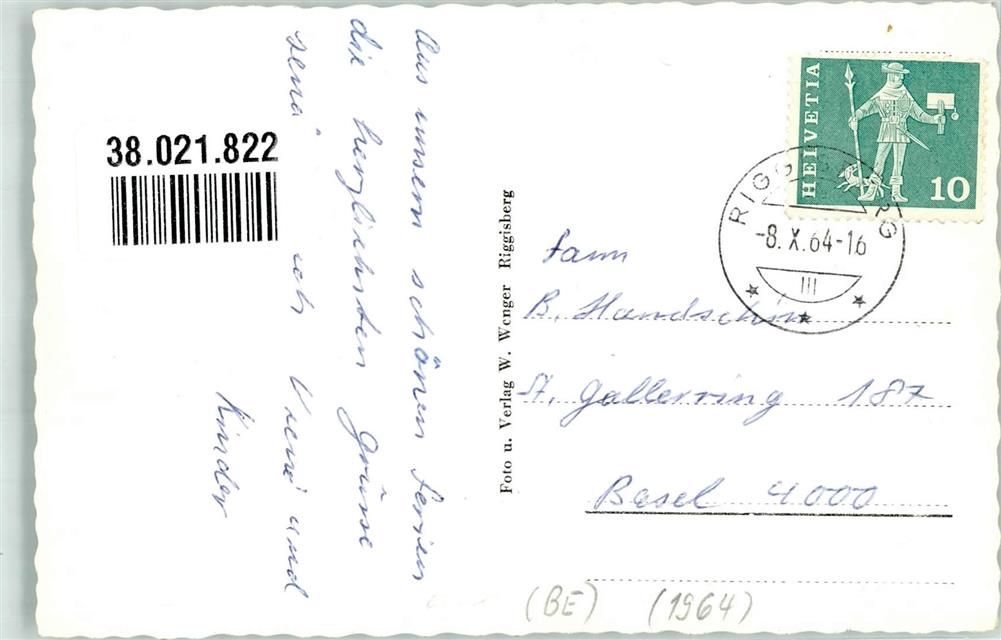 Aus unsern schönen Ferien
die herzlichsten Grüsse
send
Vreni und
Kinder
38.021.822
Foto u. Verlag W. Wenger Riggisberg
HELVETIA
10
RIGGISBERG
-8.X.64-16
III
Fam
B. Handschin
St. Gallerring 187
Basel 4000
(BE) (1964)